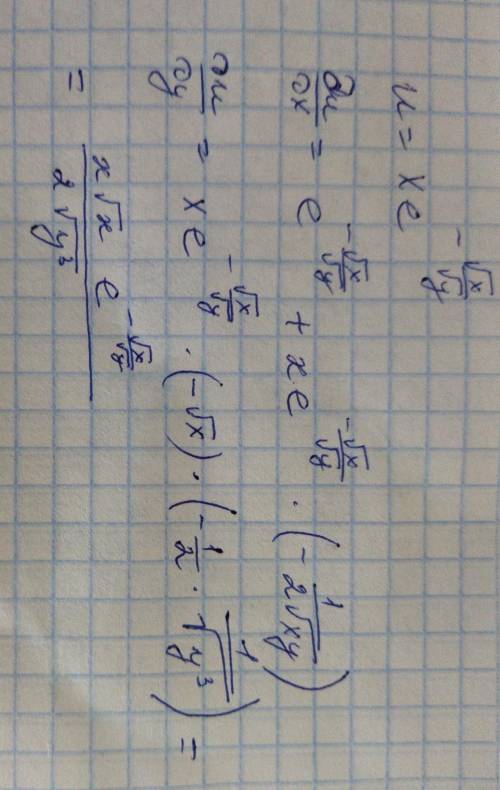 u = x e^{-\frac{\sqrt{x}}{\sqrt{y}}}
\frac{∂u}{∂x} = e^{-\frac{\sqrt{x}}{\sqrt{y}}} + x e^{-\frac{\sqrt{x}}{\sqrt{y}}} · (-\frac{1}{2\sqrt{xy}})
\frac{∂u}{∂y} = x e^{-\frac{\sqrt{x}}{\sqrt{y}}} · (-\sqrt{x}) · (-\frac{1}{2} · \frac{1}{\sqrt{y^3}}) =
= \frac{x\sqrt{x} e^{-\frac{\sqrt{x}}{\sqrt{y}}}}{2\sqrt{y^3}}